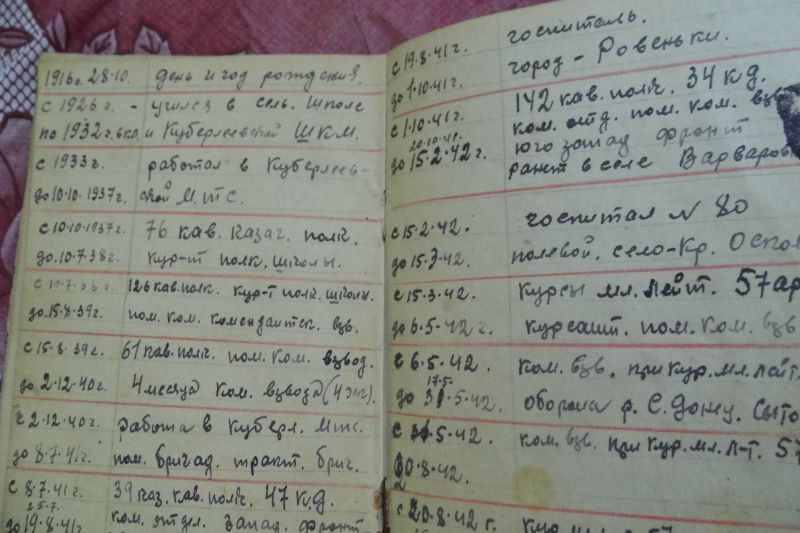 1916г. 28.10. день и год рождения.
с 1926г. - училса в сель. школе
по 1932г. 6кл. и Куберлеевской ШКМ.
с 1933г. работал в Куберлеев-
до 10.10.1937г. ской М.Т.С.
с 10.10.1937г. 76 кав. казач. полк.
до 10.7.38г. кур-т полк. школы.
с 10.7.38г. 126 кав. полк. кур-т полк. школы.
до 15.8.39г. пом. ком. комендантск. взв.
с 15.8.39г. 61 кав. полк. пом. ком. взвод.
до 2.12.40г. 4 месяца ком. взвода
с 2.12.40г. работа в куберл. мтс.
до 8.7.41г. пом. бригад. тракт. бриг.
с 8.7.41г. 39 каз. кав. полк. 47 к.д.
25.7.
до 19.8.41 ком. отдел. запад. фронт
госпиталь.
с 19.8.41г. город - Ровеньки.
до 1.10.41г.
с 1.10.41г. 142 кав. полк. 34 к.д.
ком. отд. пом. ком. взв
20.10.41.
до 15.2.42г. юго запад фронт
ранен в селе Варваров
с 15.2.42. госпитал N 80
до 15.3.42. полевой. село-Кр. Оскол
с 15.3.42. курсы мл. лейт. 57 ар
до 6.5.42г. курсант. пом. ком. взв
с 6.5.42. ком. взв. при кур. мл. лейт.
17.5.
до 31.5.42. оборона р. С. Донец.
с 31.5.42. ком. взв. при кур. мл. л-т. 57
20.8.42.
с 20.8.42г.